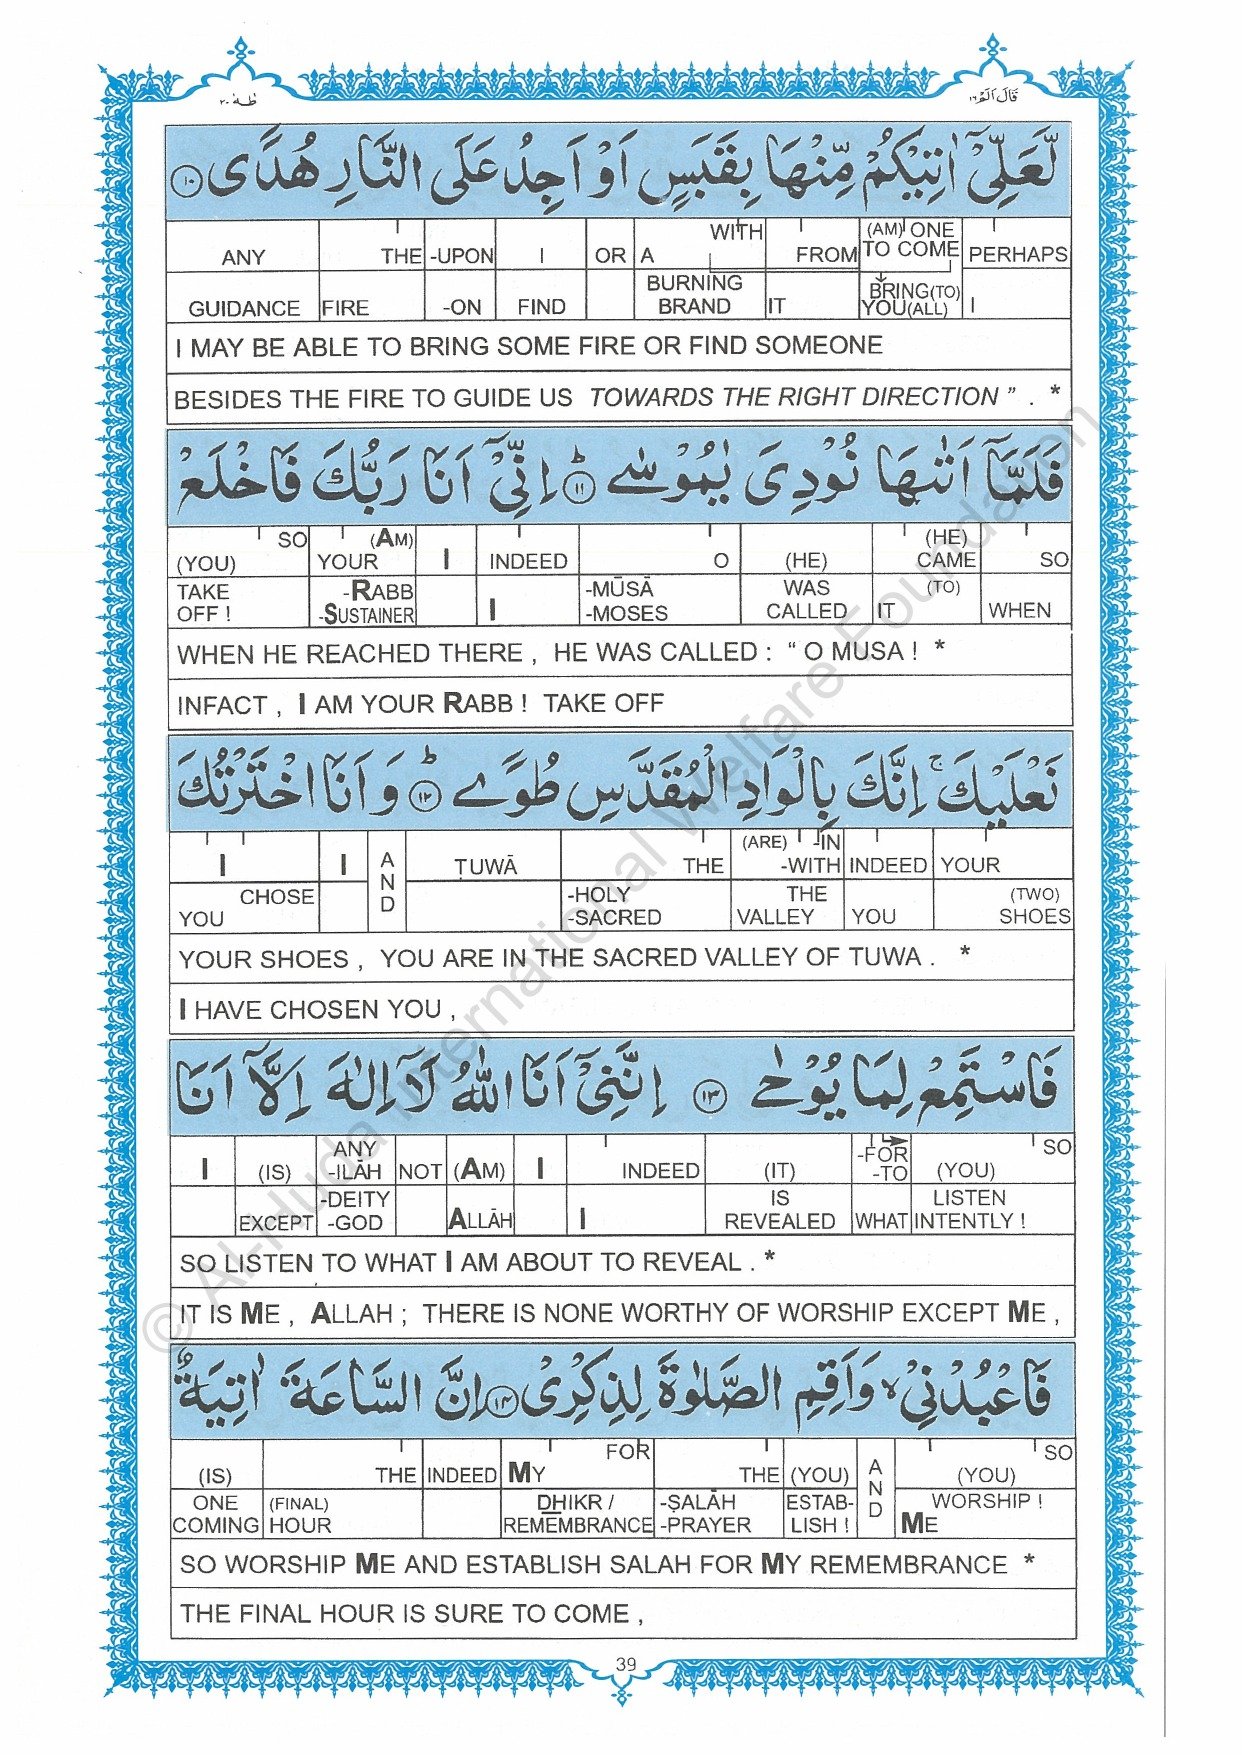 طٰهٰ ٢٠
قَالَ اَلَمْ ١٦
لَّعَلِّیْۤ اٰتِیْكُمْ مِّنْهَا بِقَبَسٍ اَوْ اَجِدُ عَلَی النَّارِ هُدًی ١٠
ANY THE -UPON I OR A WITH FROM (AM) ONE TO COME PERHAPS
GUIDANCE FIRE -ON FIND BURNING BRAND IT BRING(TO) YOU(ALL) I
I MAY BE ABLE TO BRING SOME FIRE OR FIND SOMEONE
BESIDES THE FIRE TO GUIDE US TOWARDS THE RIGHT DIRECTION ” . *
فَلَمَّاۤ اَتٰىهَا نُوْدِیَ یٰمُوْسٰی ١١ اِنِّیْۤ اَنَا رَبُّكَ فَاخْلَعْ
(YOU) SO YOUR (AM) I INDEED O (HE) (HE) CAME SO
TAKE OFF ! -RABB -SUSTAINER I -MŪSĀ -MOSES WAS CALLED IT (TO) WHEN
WHEN HE REACHED THERE , HE WAS CALLED : “ O MUSA ! *
INFACT , I AM YOUR RABB ! TAKE OFF
نَعْلَیْكَ ۚ اِنَّكَ بِالْوَادِ الْمُقَدَّسِ طُوًی ١٢ وَ اَنَا اخْتَرْتُكَ
I I AND ṬUWĀ THE (ARE) -IN -WITH INDEED YOUR
YOU CHOSE -HOLY -SACRED THE VALLEY YOU (TWO) SHOES
YOUR SHOES , YOU ARE IN THE SACRED VALLEY OF TUWA . *
I HAVE CHOSEN YOU ,
فَاسْتَمِعْ لِمَا یُوْحٰی ١٣ اِنَّنِیْۤ اَنَا اللّٰهُ لَاۤ اِلٰهَ اِلَّاۤ اَنَا
I (IS) ANY -ILĀH NOT (AM) I INDEED (IT) -FOR -TO (YOU) SO
EXCEPT -DEITY -GOD ALLĀH I IS REVEALED WHAT LISTEN INTENTLY !
SO LISTEN TO WHAT I AM ABOUT TO REVEAL . *
IT IS ME , ALLAH ; THERE IS NONE WORTHY OF WORSHIP EXCEPT ME ,
فَاعْبُدْنِیْ ۙ وَاَقِمِ الصَّلٰوةَ لِذِكْرِیْ ١٤ اِنَّ السَّاعَةَ اٰتِیَةٌ
(IS) THE INDEED MY FOR THE (YOU) AND (YOU) SO
ONE COMING (FINAL) HOUR DHIKR / REMEMBRANCE -ṢALĀH -PRAYER ESTAB- LISH ! WORSHIP ! ME
SO WORSHIP ME AND ESTABLISH SALAH FOR MY REMEMBRANCE *
THE FINAL HOUR IS SURE TO COME ,
39
© Al-Huda International Welfare Foundation